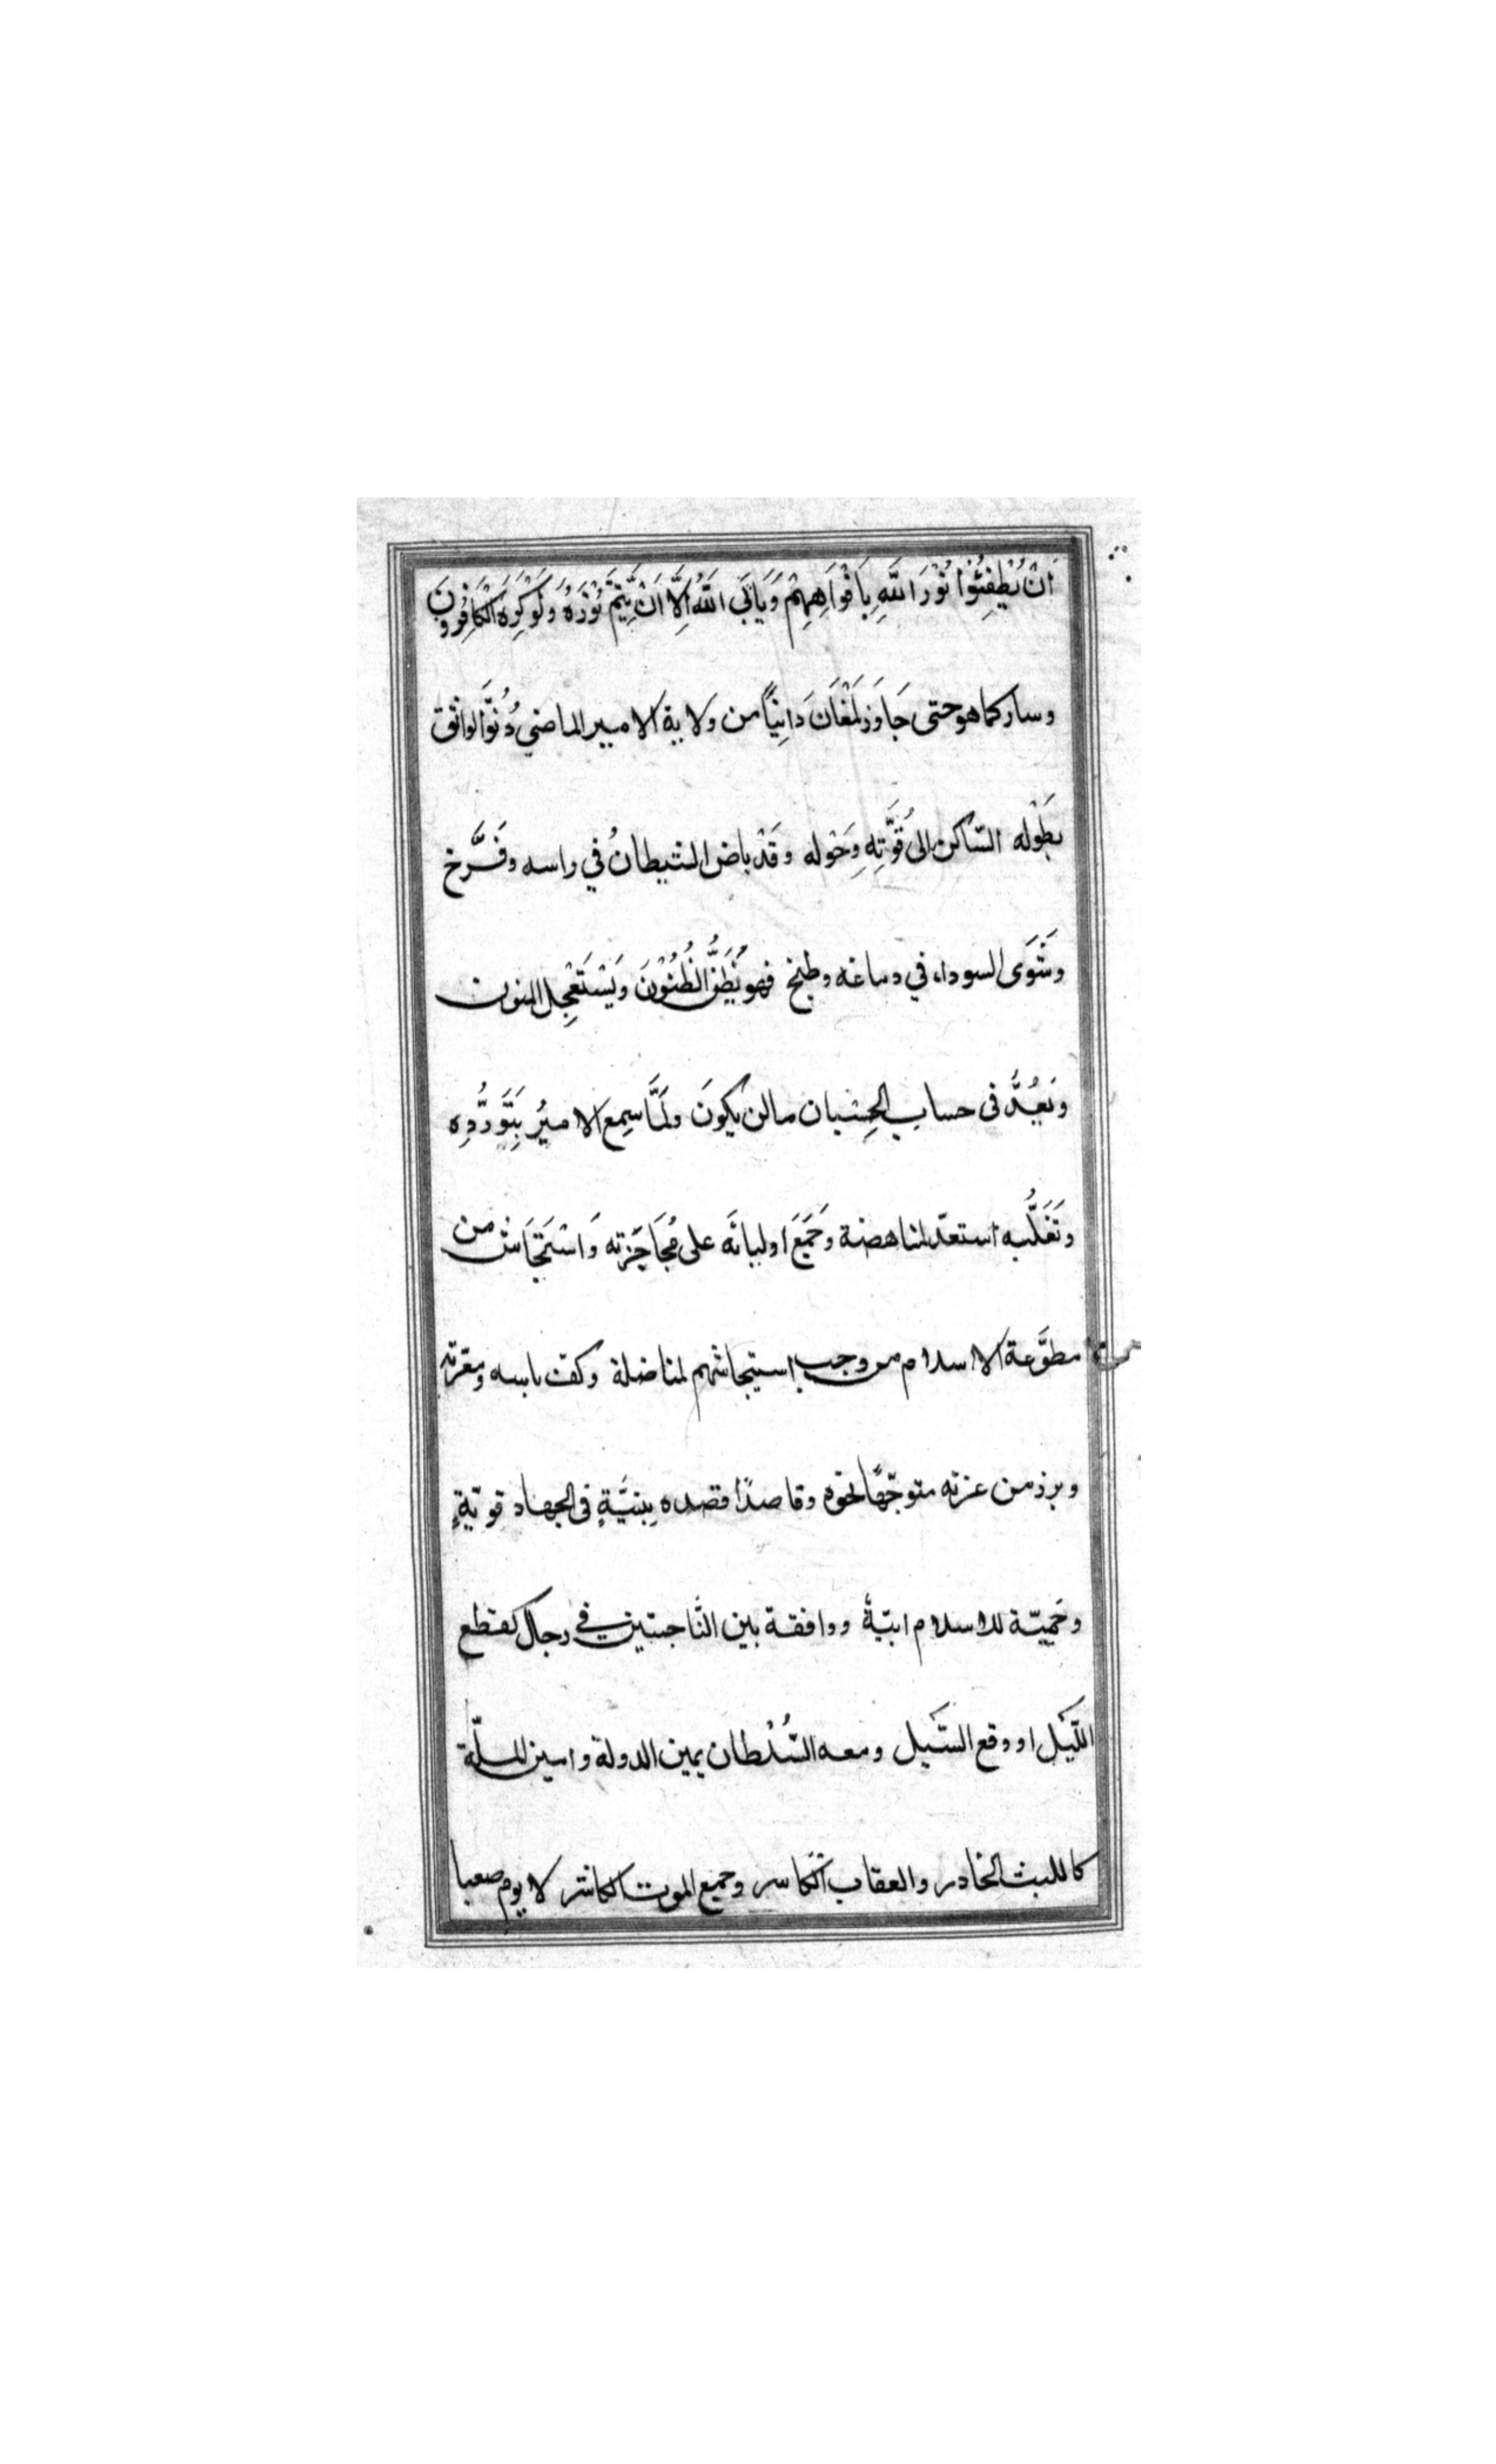 اَنْ يُطْفِئُوا نُوْرَ اللّٰهِ بِاَفْوَاهِهِمْ وَيَاْبَى اللّٰهُ اِلَّا اَنْ يُتِمَّ نُوْرَهُ وَلَوْ كَرِهَ الْكَافِرُوْنَ
وسار كما هو حتى جَاوَزَ لَمْغَانَ دَانِيًا من ولاية الامير الماضي دُنُوَّ الواثق
بِطَوْله السّاكن الى قُوَّتِهِ وَحَوْله وقَدْ باض الشيطانُ في راسه وفَرَّخ
وَشَوَى السوداء في دماغه وطبخ فهو يَظُنُّ الظُنُوْنَ وَيَسْتَعْجِل المنون
وَيَعُدُّ فى حساب الحِسْبان مالن يكونَ ولَمَّا سِمع الاميُر بِتَوَرُّدِه
وتَغَلُّبه استعدّ لمناهضة وَجَمَعَ اولياَئه على مُجَاحَزته وَاسْتَجَاش من
مطوَّعة الاسلام من وجب استيجاشهم لمناضلة وكفّ باسه ومعرّته
وبرز من غزنه متوجّهًا نحوه وقاصدًا قصده بِنيَّةٍ فى الجهاد قويّةٍ
وحَميّة للاسلام ابيّةٌ ووافقة بين الناجتين في رجال كقطع
اللَّيْل او وقع السَّيل ومعه السُّلْطان يمين الدولة وامين الملّة
كالليث الخادر والعقاب الكاسر وجميع الموت الكاشر لا يوم صعبا